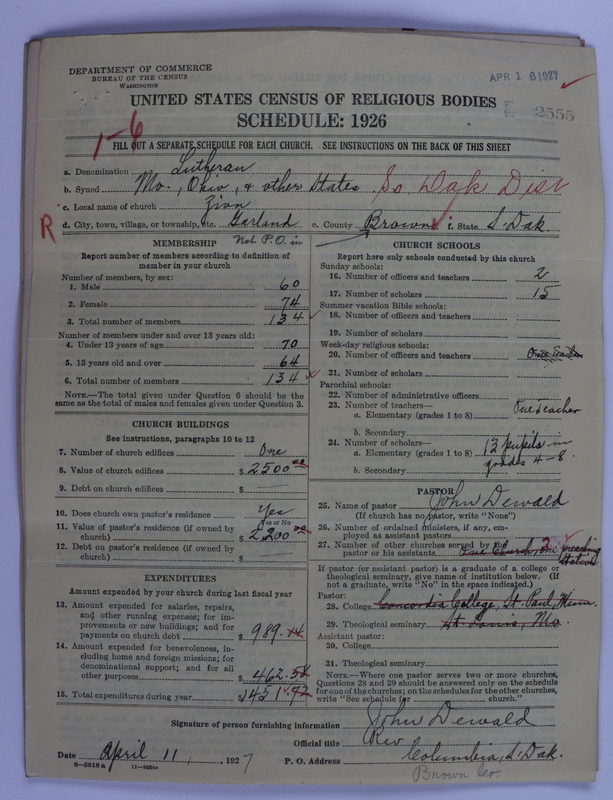 DEPARTMENT OF COMMERCE
BUREAU OF THE CENSUS
WASHINGTON
APR 16 1927
UNITED STATES CENSUS OF RELIGIOUS BODIES
SCHEDULE: 1926
2555
1-6
FILL OUT A SEPARATE SCHEDULE FOR EACH CHURCH. SEE INSTRUCTIONS ON THE BACK OF THIS SHEET
a. Denomination Lutheran
b. Synod Mo., Ohio, & other States So Dak Dist
c. Local name of church Zion
R d. City, town, village, or township, etc. Garland e. County Brown f. State S. Dak.
Not P.O. in
MEMBERSHIP
Report number of members according to definition of
member in your church
Number of members, by sex:
1. Male 60
2. Female 74
3. Total number of members 134
Number of members under and over 13 years old:
4. Under 13 years of age 70
5. 13 years old and over 64
6. Total number of members 134
NOTE.—The total given under Question 6 should be the
same as the total of males and females given under Question 3.
CHURCH BUILDINGS
See instructions, paragraphs 10 to 12
7. Number of church edifices One
8. Value of church edifices $ 2500.00
9. Debt on church edifices $
10. Does church own pastor's residence? Yes
(Yes or No)
11. Value of pastor's residence (if owned by
church) $ 2200.00
12. Debt on pastor's residence (if owned by
church) $
EXPENDITURES
Amount expended by your church during last fiscal year
13. Amount expended for salaries, repairs,
and other running expenses; for im-
provements or new buildings; and for
payments on church debt $ 989.44
14. Amount expended for benevolences, in-
cluding home and foreign missions; for
denominational support; and for all
other purposes $ 462.
15. Total expenditures during year $ 1451.
CHURCH SCHOOLS
Report here only schools conducted by this church
Sunday schools:
16. Number of officers and teachers 2
17. Number of scholars 15
Summer vacation Bible schools:
18. Number of officers and teachers
19. Number of scholars
Week-day religious schools:
20. Number of officers and teachers One Teacher
21. Number of scholars
Parochial schools:
22. Number of administrative officers
23. Number of teachers—
a. Elementary (grades 1 to 8) One Teacher
b. Secondary
24. Number of scholars—
a. Elementary (grades 1 to 8) 13 pupils in
b. Secondary grades 4-8.
PASTOR
25. Name of pastor John Dewald
(If church has no pastor, write "None")
26. Number of ordained ministers, if any, em-
ployed as assistant pastors
27. Number of other churches served by the
pastor or his assistants One Church, 2 preaching
Station
If pastor (or assistant pastor) is a graduate of a college or
theological seminary, give name of institution below. (If
not a graduate, write "No" in the space indicated.)
Pastor:
28. College Concordia College, St. Paul, Minn.
29. Theological seminary St. Louis, Mo.
Assistant pastor:
30. College
31. Theological seminary
NOTE.—Where one pastor serves two or more churches,
Questions 28 and 29 should be answered only on the schedule
for one of the churches; on the schedules for the other churches,
write "See schedule for church."
Signature of person furnishing information John Dewald
Official title Rev
Date April 11, 1927 P. O. Address Columbia, S. Dak.
8-5318a 11-9051
Brown Co.